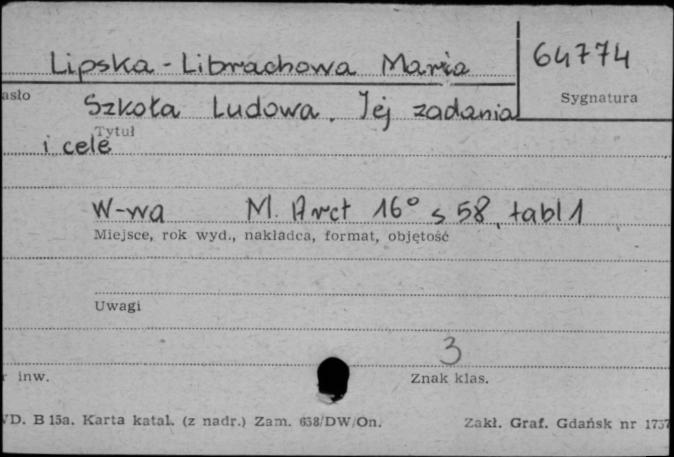 Lipska-Librachowa Maria
64774
asło
Sygnatura
Szkoła Ludowa. Jej zadania
Tytuł
i cele
W-wa M. Arct 16° s 58, tabl 1
Miejsce, rok wyd., nakładca, format, objętość
Uwagi
3
r inw.
Znak klas.
WD. B 15a. Karta katal. (z nadr.) Zam. 638/DW/On.
Zakł. Graf. Gdańsk nr 1737